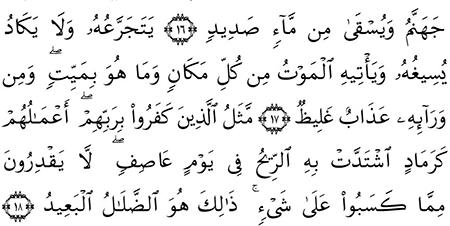 جَهَنَّمُ وَيُسْقَىٰ مِن مَّآءٍ صَدِيدٍ ﴿١٦﴾ يَتَجَرَّعُهُۥ وَلَا يَكَادُ
يُسِيغُهُۥ وَيَأْتِيهِ الْمَوْتُ مِن كُلِّ مَكَانٍ وَمَا هُوَ بِمَيِّتٍۖ وَمِن
وَرَآئِهِۦ عَذَابٌ غَلِيظٌ ﴿١٧﴾ مَّثَلُ الَّذِينَ كَفَرُوا۟ بِرَبِّهِمْۖ أَعْمَـٰلُهُمْ
كَرَمَادٍ اشْتَدَّتْ بِهِ الرِّيحُ فِى يَوْمٍ عَاصِفٍۖ لَّا يَقْدِرُونَ
مِمَّا كَسَبُوا۟ عَلَىٰ شَىْءٍۚ ذَٰلِكَ هُوَ الضَّلَـٰلُ الْبَعِيدُ ﴿١٨﴾